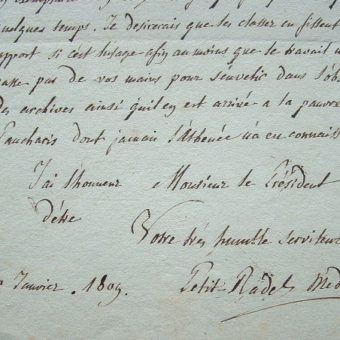 quelques temps. Je desirerais que les classes en fissent
rapport si c'est l'usage afin au moins que le travail ne
passe pas de vos mains pour s'ensevelir dans l'
des archives ainsi qu'il en est arrivé a la pauvre
Eucharis dont jamais l'Athenée n'a eu
J'ai l'honneur Monsieur le Président
d'être
Votre très humble serviteur
Janvier . 1809. Petit Radel Med